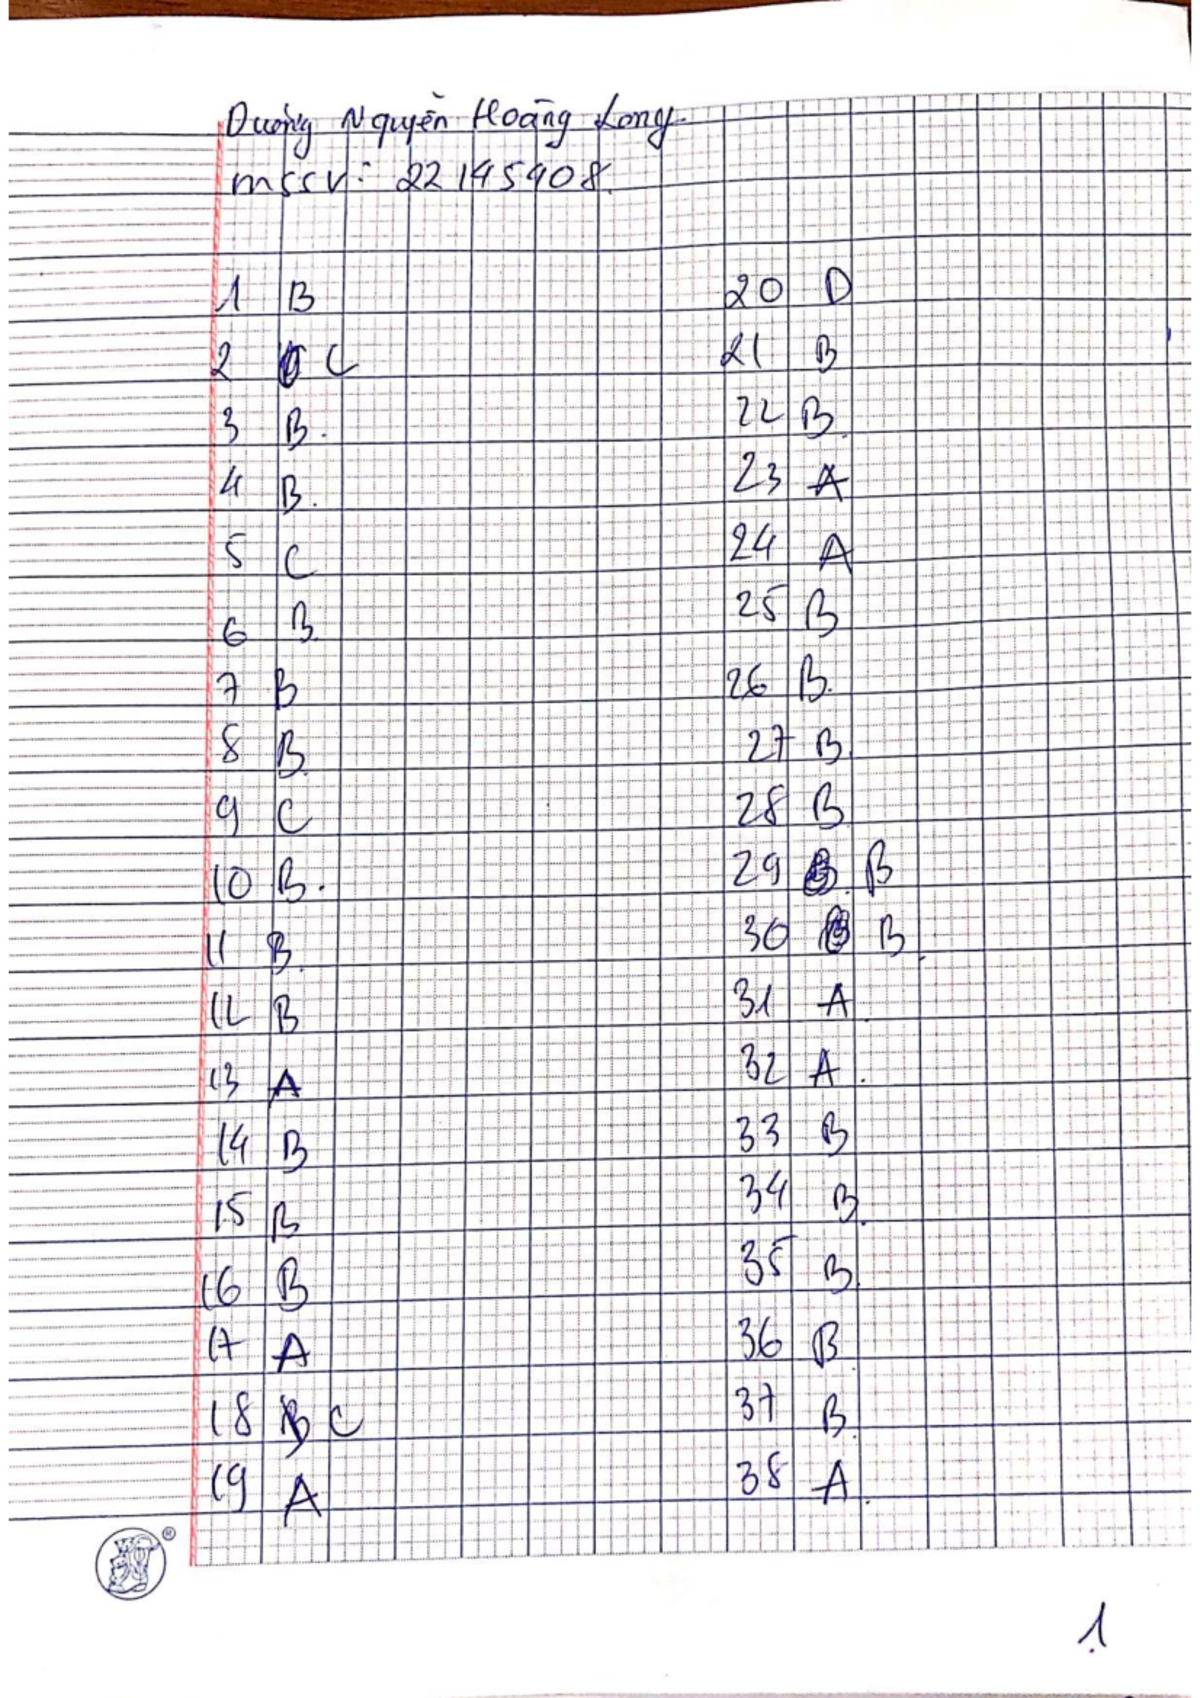 Dương Nguyễn Hoàng Long
mssv: 22145408.
1 B
2 C
3 B.
4 B.
5 C
6 B
7 B
8 B
9 C
10 B.
11 B
12 B
13 A
14 B
15 B
16 B
17 A
18 C
19 A
20 D
21 B
22 B
23 A
24 A
25 B
26 B.
27 B.
28 B
29 B
30 B.
31 A.
32 A.
33 B
34 B.
35 B
36 B
37 B
38 A.
®
1